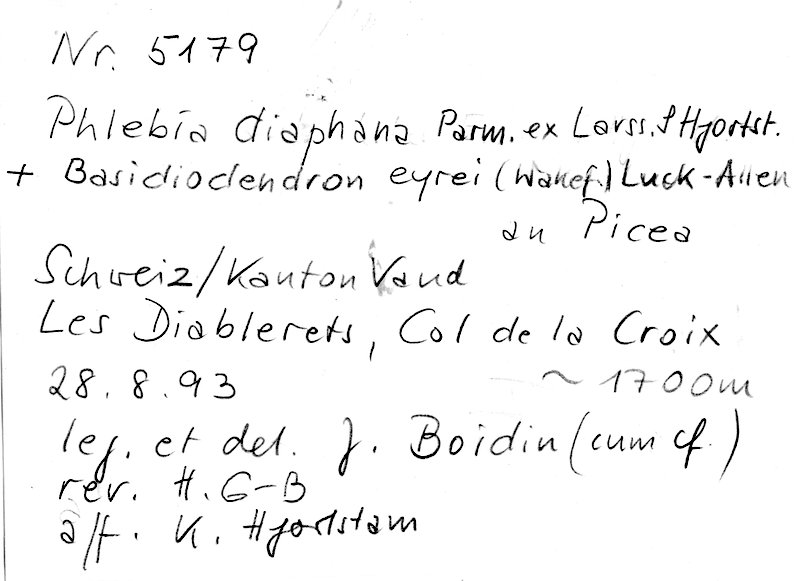 Nr. 5179
Phlebia diaphana Parm. ex Larss. & Hjortst.
+ Basidiodendron eyrei (Wakef.) Luck-Allen
an Picea
Schweiz/Kanton Vaud
Les Diablerets, Col de la Croix
28.8.93 ~1700m
leg. et det. J. Boidin (cum cf.)
rev. H. G-B
aff. K. Hjortstam